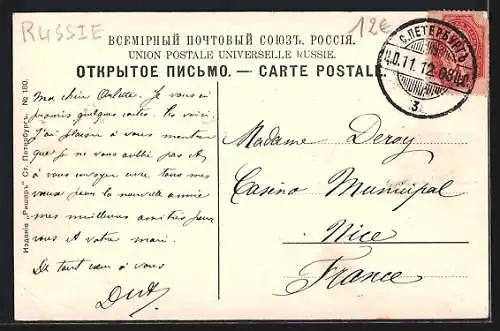 RUSSIE
12€
ВСЕМІРНЫЙ ПОЧТОВЫЙ СОЮЗЪ. РОССІЯ.
UNION POSTALE UNIVERSELLE RUSSIE.
ОТКРЫТОЕ ПИСЬМО. — CARTE POSTALE.
С.ПЕТЕРБУРГЪ
11.12
3
Ma chère Arlette. Je vous ai
promis quelques cartes. Les voici.
J'ai plaisir à vous montrer
que je ne vous oublie pas et
à vous envoyer avec tous mes
vœux pour la nouvelle année
mes meilleures amitiés pour
vous et votre mari.
De tout cœur à vous
Madame Deroy
Casino Municipal
Nice
France
Изданіе „Ришаръ" Ст. Петербургъ. № 180.